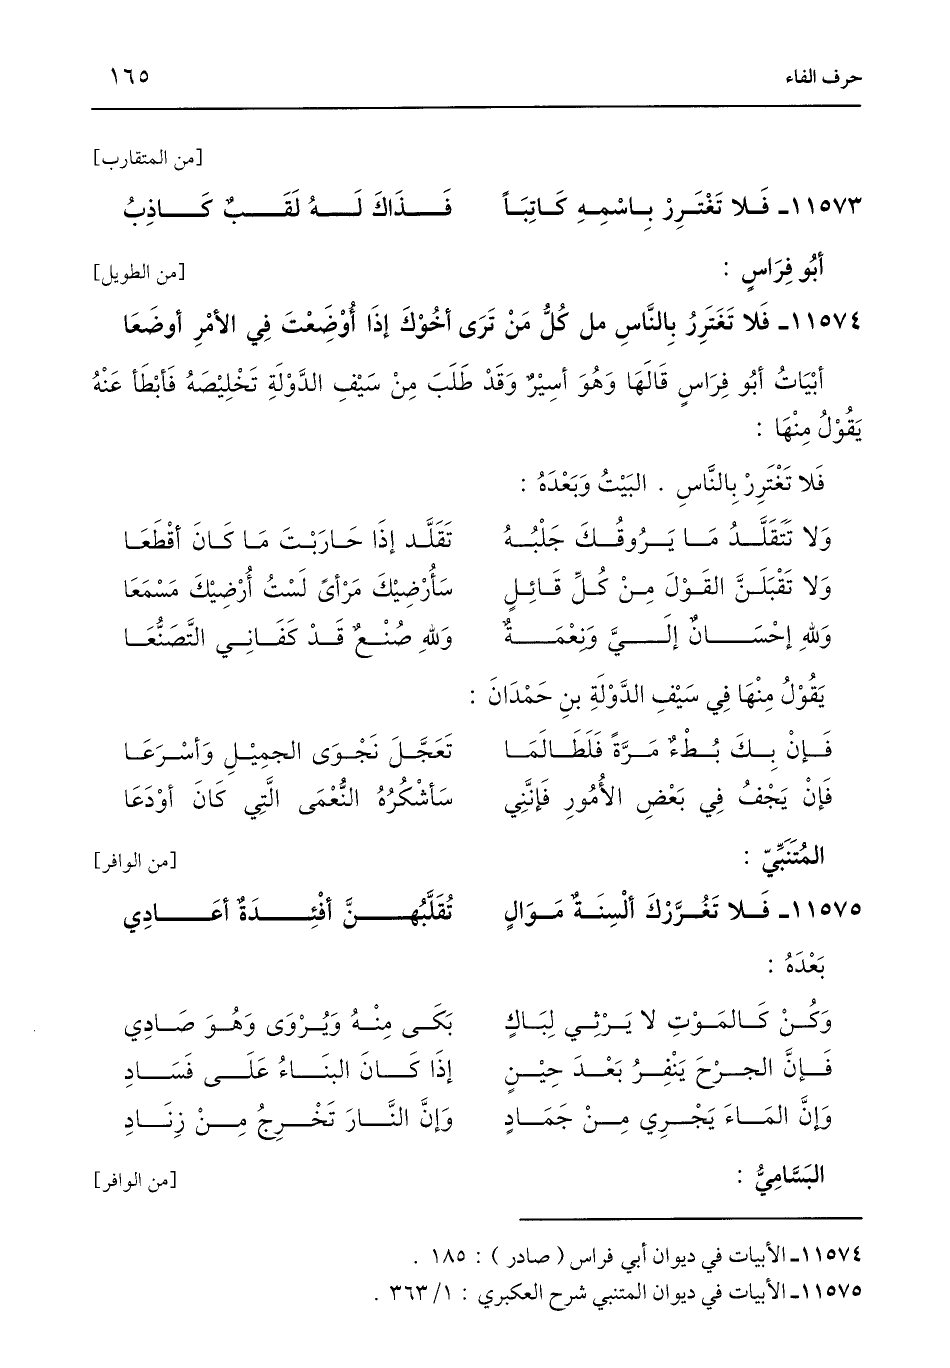 حرف الفاء ١٦٥
[من المتقارب]
١١٥٧٣ـ فَلا تَغْتَرِرْ بِاسْمِهِ كَاتِبَاً فَذَاكَ لَهُ لَقَبٌ كَاذِبُ
أَبُو فِرَاسٍ : [من الطويل]
١١٥٧٤ـ فَلا تَغَتَرِرُ بِالنَّاسِ مل كُلُّ مَنْ تَرَى أَخُوْكَ إِذَا أُوْضَعْتَ فِي الأَمْرِ أَوضَعَا
أَبْيَاتُ أَبُو فِرَاسٍ قَالَهَا وَهُوَ أَسِيْرٌ وَقَدْ طَلَبَ مِنْ سَيْفِ الدَّوْلَةِ تَخْلِيْصَهُ فَأَبْطَأَ عَنْهُ
يَقُوْلُ مِنْهَا :
فَلا تَغْتَرِرْ بِالنَّاسِ . البَيْتُ وَبَعْدَهُ :
وَلا تَتَقَلَّدُ مَا يَرُوقُكَ جَلْبُهُ تَقَلَّد إِذَا حَارَبْتَ مَا كَانَ أَقْطَعَا
وَلا تَقْبَلَنَّ القَوْلَ مِنْ كُلِّ قَائِلٍ سَأُرْضِيْكَ مَرْأىً لَسْتُ أُرْضِيْكَ مَسْمَعَا
وَللهِ إِحْسَانٌ إِلَيَّ وَنِعْمَةٌ وَللهِ صُنْعٌ قَدْ كَفَانِي التَّصَنُّعَا
يَقُوْلُ مِنْهَا فِي سَيْفِ الدَّوْلَةِ بنِ حَمْدَانَ :
فَإِنْ بِكَ بُطْءٌ مَرَّةً فَلَطَالَمَا تَعَجَّلَ نَجْوَى الجمِيْلِ وَأَسْرَعَا
فَإِنْ يَجْفُ فِي بَعْضِ الأُمُورِ فَإِنَّنِي سَأَشْكُرُهُ النُّعْمَى الَّتِي كَانَ أَوْدَعَا
المُتَنَبِّيّ : [من الوافر]
١١٥٧٥ـ فَلا تَغُرَّرْكَ أَلْسِنَةٌ مَوَالٍ تُقَلِّبُهنَّ أَفْئِدَةٌ أَعَادِي
بَعْدَهُ :
وَكُنْ كَالمَوْتِ لا يَرْثِي لِبَاكٍ بَكَى مِنْهُ وَيُرْوَى وَهُوَ صَادِي
فَإِنَّ الجرْحَ يَنْفِرُ بَعْدَ حِيْنٍ إِذَا كَانَ البنَاءُ عَلَى فَسَادِ
وَإِنَّ المَاءَ يَجْرِي مِنْ جَمَادٍ وَإِنَّ النَّارَ تَخْرجُ مِنْ زِنَادِ
البَسَّامِيُّ : [من الوافر]
١١٥٧٤ـ الأبيات في ديوان أبي فراس ( صادر ) : ١٨٥ .
١١٥٧٥ـ الأبيات في ديوان المتنبي شرح العكبري : ١/ ٣٦٣ .